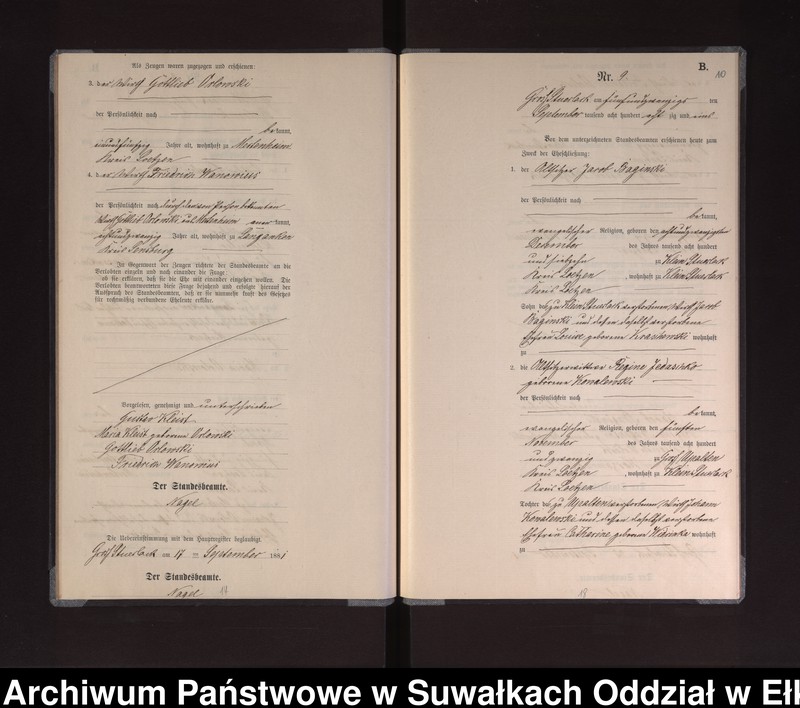 Als Zeugen waren zugezogen und erschienen:
3. der Wirth Gottlieb Orlowski
der Persönlichkeit nach
bekannt,
einundfünfzig Jahre alt, wohnhaft zu
Kreis Loetzen
4. der Wirth Friedrich Wanowius
der Persönlichkeit nach durch den von Person bekannten
Wirth Gottlieb Orlowski aus anerkannt,
achtundzwanzig Jahre alt, wohnhaft zu Langanken
Kreis Sensburg
In Gegenwart der Zeugen richtete der Standesbeamte an die
Verlobten einzeln und nach einander die Frage:
ob sie erklären, daß sie die Ehe mit einander eingehen wollen. Die
Verlobten beantworteten diese Frage bejahend und erfolgte hierauf der
Ausspruch des Standesbeamten, daß er sie nunmehr kraft des Gesetzes
für rechtmäßig verbundene Eheleute erkläre.
Vorgelesen, genehmigt und unterschrieben
Gustav Kleist
Maria Kleist geborene Orlowski
Gottlieb Orlowski
Friedrich Wanowius
Der Standesbeamte.
Nagel
Die Uebereinstimmung mit dem Hauptregister beglaubigt.
Groß Stuerlack am 17 ten September 1881
Der Standesbeamte.
Nagel
B.
10
Nr. 9.
Groß Stuerlack am fünfundzwanzigs ten
September tausend acht hundert achtzig und eins
Vor dem unterzeichneten Standesbeamten erschienen heute zum
Zweck der Eheschließung:
1. der Altsitzer Jacob Baginski
der Persönlichkeit nach
bekannt,
evangelischer Religion, geboren den achtundzwanzigsten
Dezember des Jahres tausend acht hundert
und zu Klein Stuerlack
Kreis Loetzen, wohnhaft zu Klein Stuerlack
Kreis Loetzen
Sohn des zu Klein Stuerlack verstorbenen Wirth Jacob
Baginski und dessen daselbst verstorbene
Ehefrau Louise geborene wohnhaft
zu
2. die Altsitzerwittwe Regine Jedasinko
geborene Kowalewski
der Persönlichkeit nach
bekannt,
evangelischer Religion, geboren den fünften
November des Jahres tausend acht hundert
und zwanzig zu Groß Upalten
Kreis Loetzen, wohnhaft zu Klein Stuerlack
Kreis Loetzen
Tochter des zu Upalten verstorbenen Wirth Johann
Kowalewski und dessen daselbst verstorbene
Ehefrau Catharine geborene wohnhaft
zu
Archiwum Państwowe w Suwałkach Oddział w Ełk